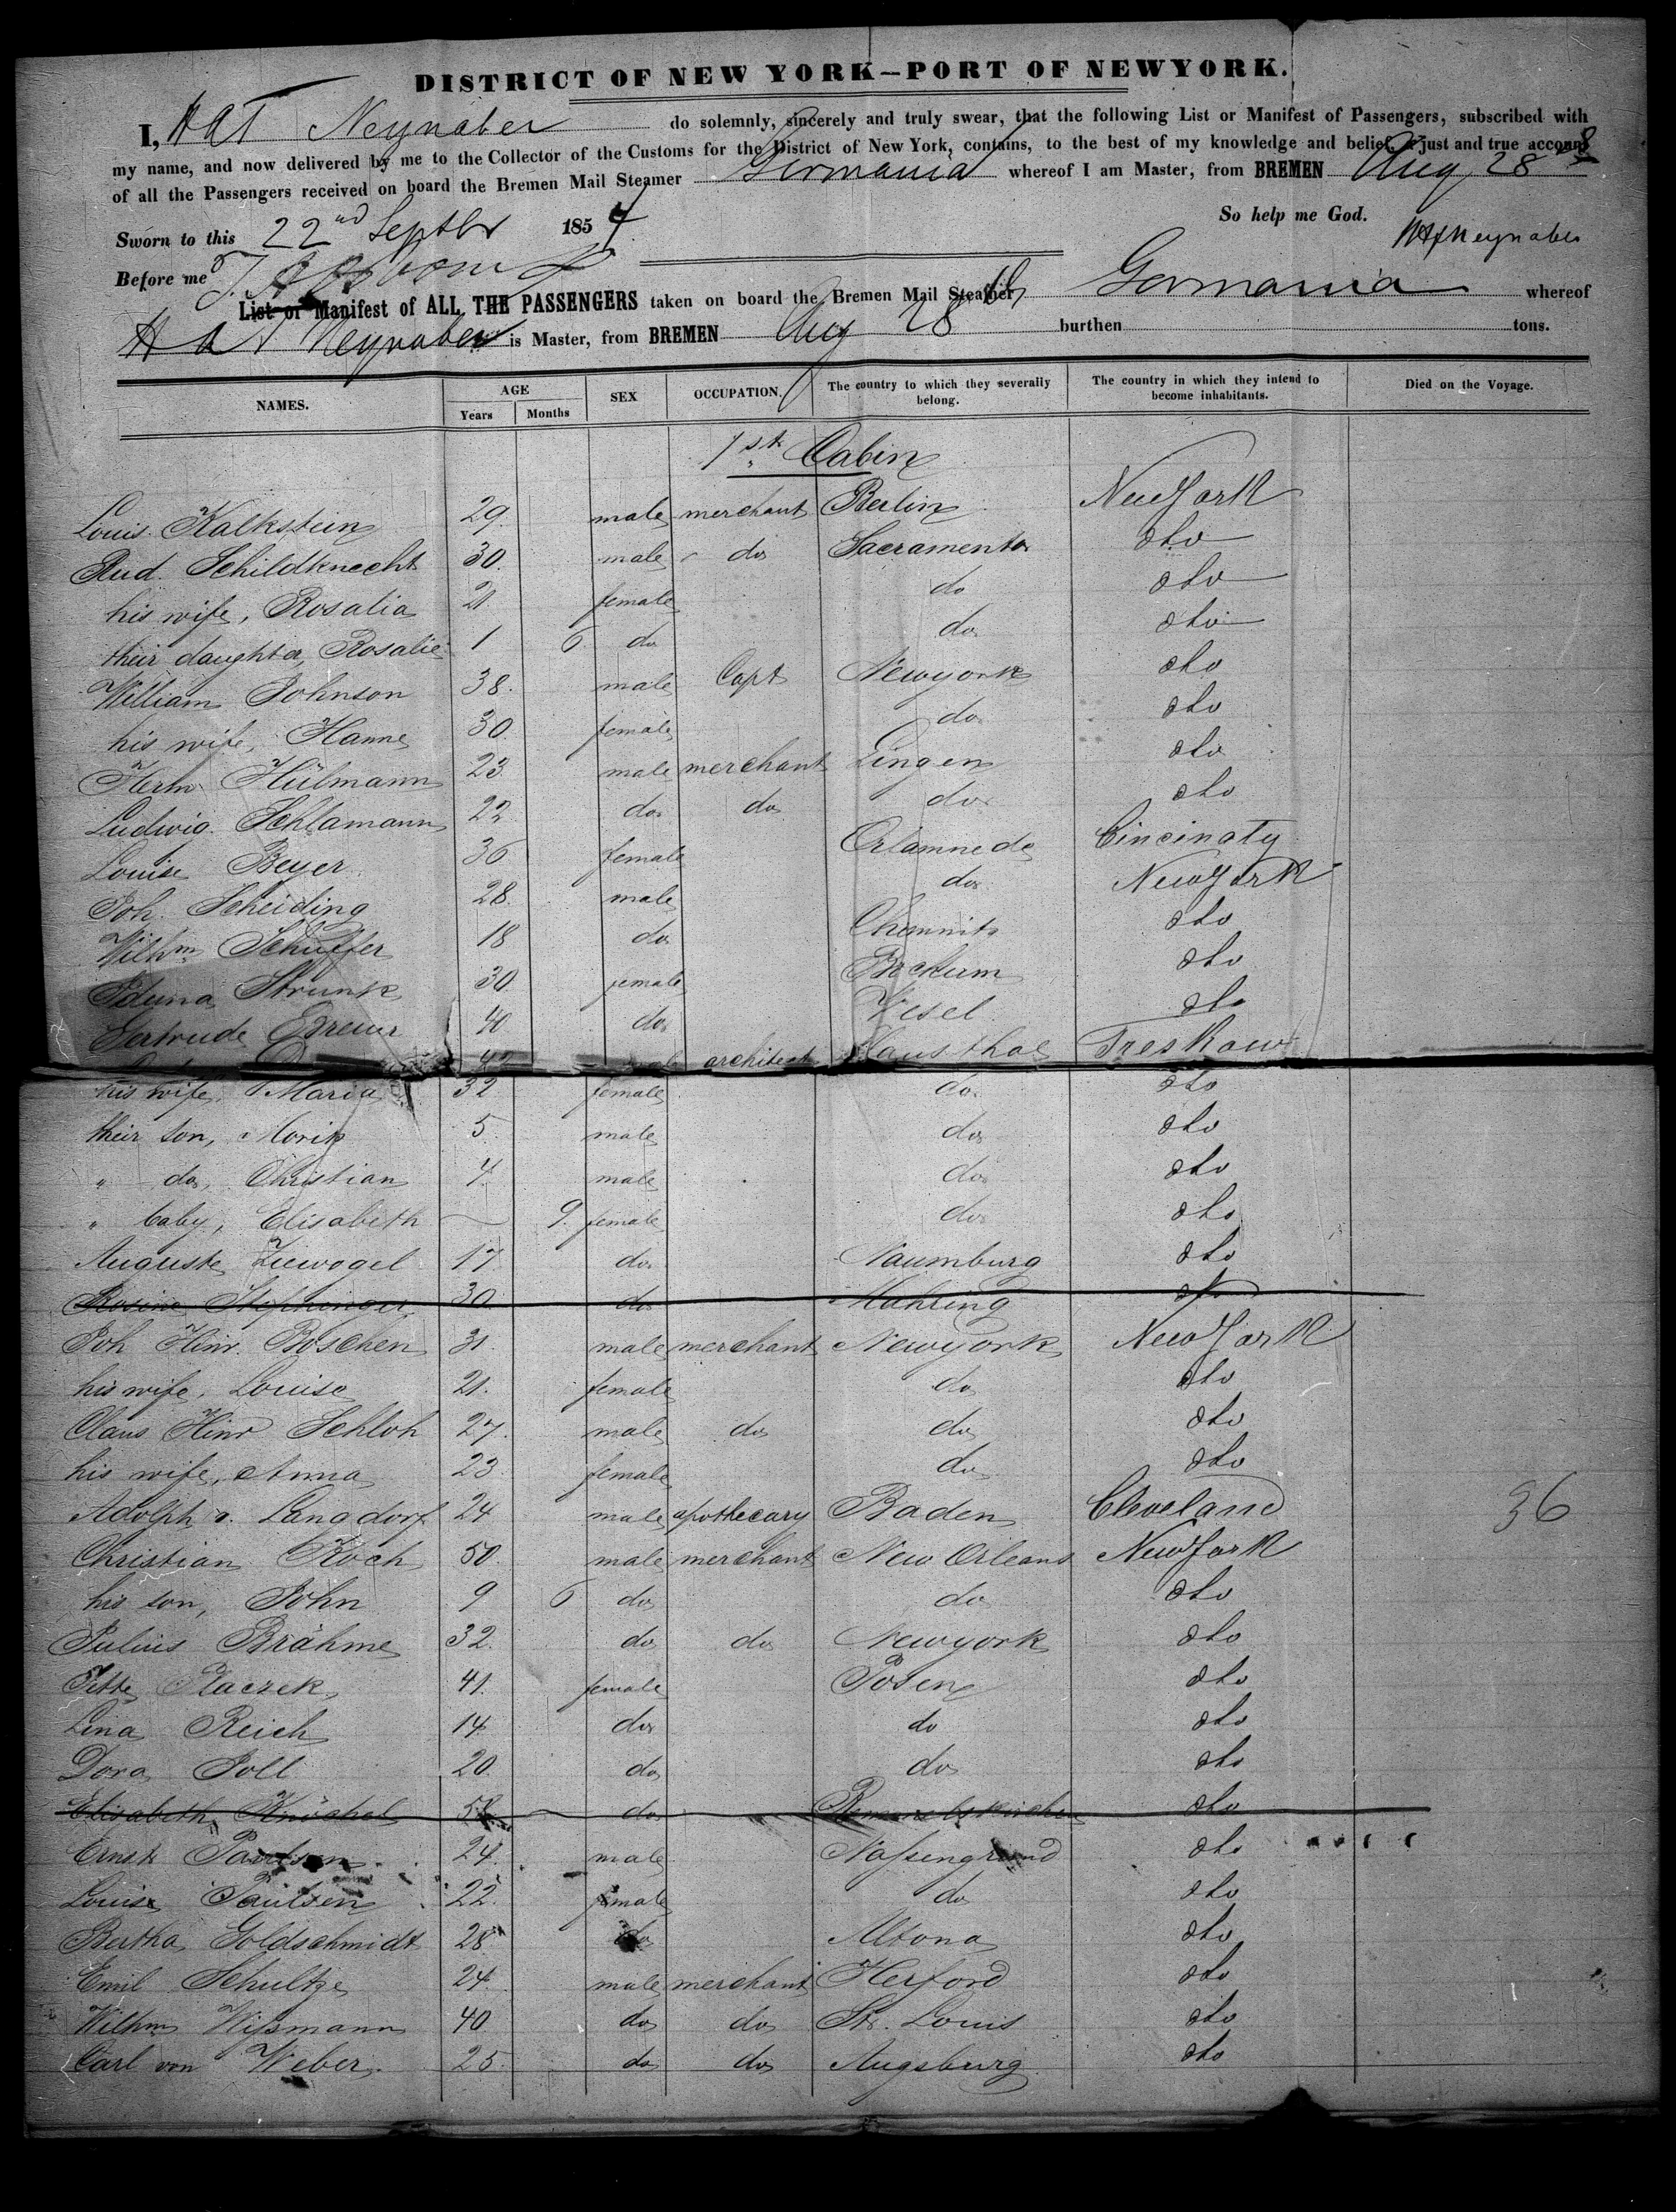 DISTRICT OF NEW YORK—PORT OF NEWYORK.
I, HAT Neynaber do solemnly, sincerely and truly swear, that the following List or Manifest of Passengers, subscribed with
my name, and now delivered by me to the Collector of the Customs for the District of New York, contains, to the best of my knowledge and belief, a just and true account
of all the Passengers received on board the Bremen Mail Steamer Germania whereof I am Master, from BREMEN Aug 28
So help me God.
Sworn to this 22nd Septbr 1854 Neynaber
Before me
List or Manifest of ALL THE PASSENGERS taken on board the Bremen Mail Steamer Germania whereof
HAT Neynaber is Master, from BREMEN Aug 28th burthen tons.
NAMES. AGE Years Months SEX OCCUPATION. The country to which they severally belong. The country in which they intend to become inhabitants. Died on the Voyage.
1st Cabin
Louis Kalkstein 29 male merchant Berlin New York
Rud. Schildknecht 30 male do Sacramento dto
his wife, Rosalia 21 female do dto
their daughter, Rosalie 1 6 do do dto
William Johnson 38 male Capt Newyork dto
his wife, Hanne 30 female do dto
Herm. Hülmann 23 male merchant Lingen dto
Ludwig Schlamann 22 do do do dto
Louise Beyer 36 female Orlamnede Cincinaty
Joh. Scheiding 28 male do New York
Wilhm Schüffer 18 do Chemnitz dto
Iduna Strunk 30 female Bochum dto
Gertrude 40 do Wesel dto
42 male architect Clausthal Treskow
his wife, Maria 32 female do dto
their son, Moritz 5 male do dto
" do, Christian 4 male do dto
" baby, Elisabeth 9 female do dto
Auguste Zuevogel 17 do Naumburg dto
Rosine 30 do Mähring dto
Joh Hinr. Böschen 31 male merchant Newyork New York
his wife, Louise 21 female do dto
Claus Hinr Schloh 27 male do do dto
his wife, Anna 23 female do dto
Adolph v. Langdorf 24 male apothecary Baden Cleveland 36
Christian Koch 50 male merchant New Orleans New York
his son, John 9 6 do do dto
Julius Brähme 32 do do Newyork dto
Jette Placzek 41 female Posen dto
Lina Reich 14 do do dto
Dora Joll 20 do do dto
Elisabeth Knöchel do dto
Ernst Paulsen 24 male Nassengrund dto
Louise Paulsen 22 female do dto
Bertha Goldschmidt 28 do Altona dto
Emil Schultze 24 male merchant Herford dto
Wilhm Wissmann 40 do do St. Louis dto
Carl von Weber 25 do do Augsburg dto